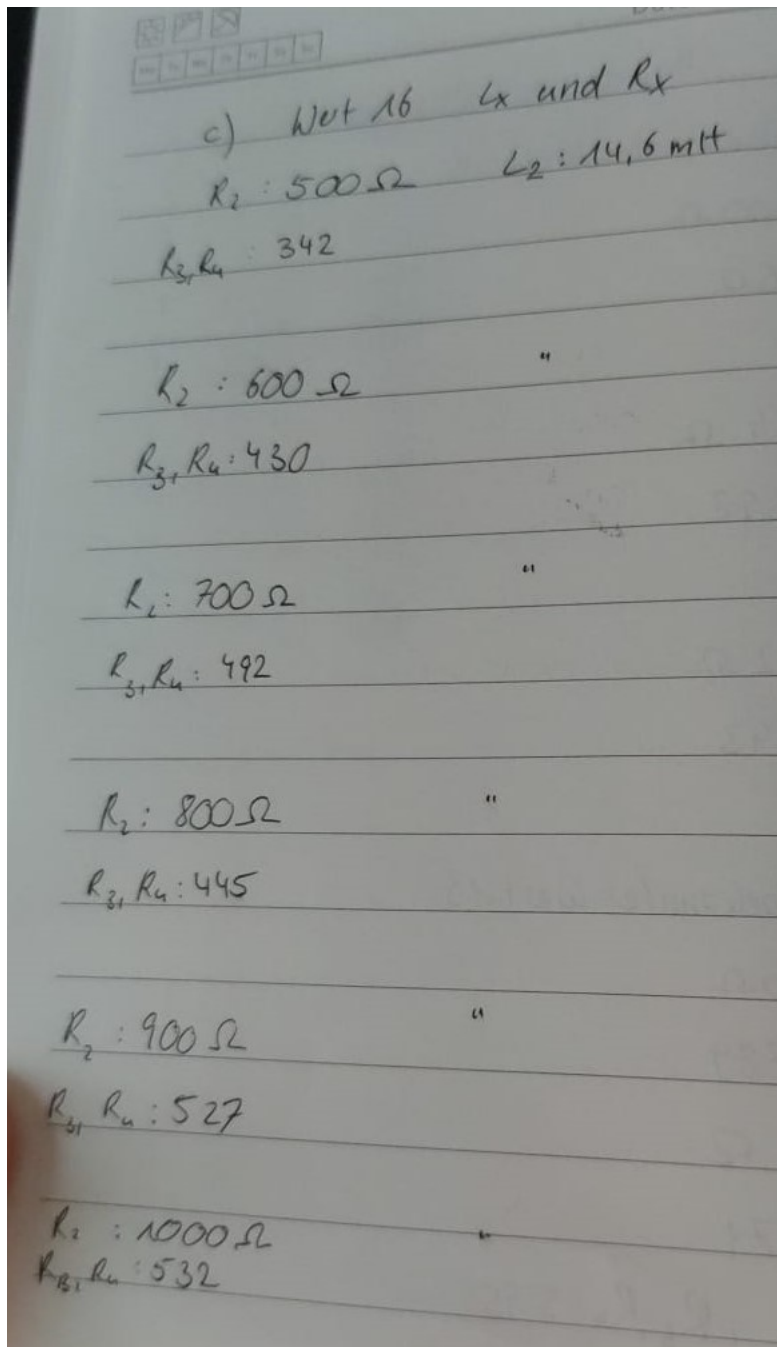 c) Wert 16 Lx und Rx
R2 : 500 Ω L2 : 14,6 mH
R3, R4 : 342
R2 : 600 Ω "
R3, R4 : 430
R2 : 700 Ω "
R3, R4 : 492
R2 : 800 Ω "
R3, R4 : 445
R2 : 900 Ω "
R3, R4 : 527
R2 : 1000 Ω "
R3, R4 : 532